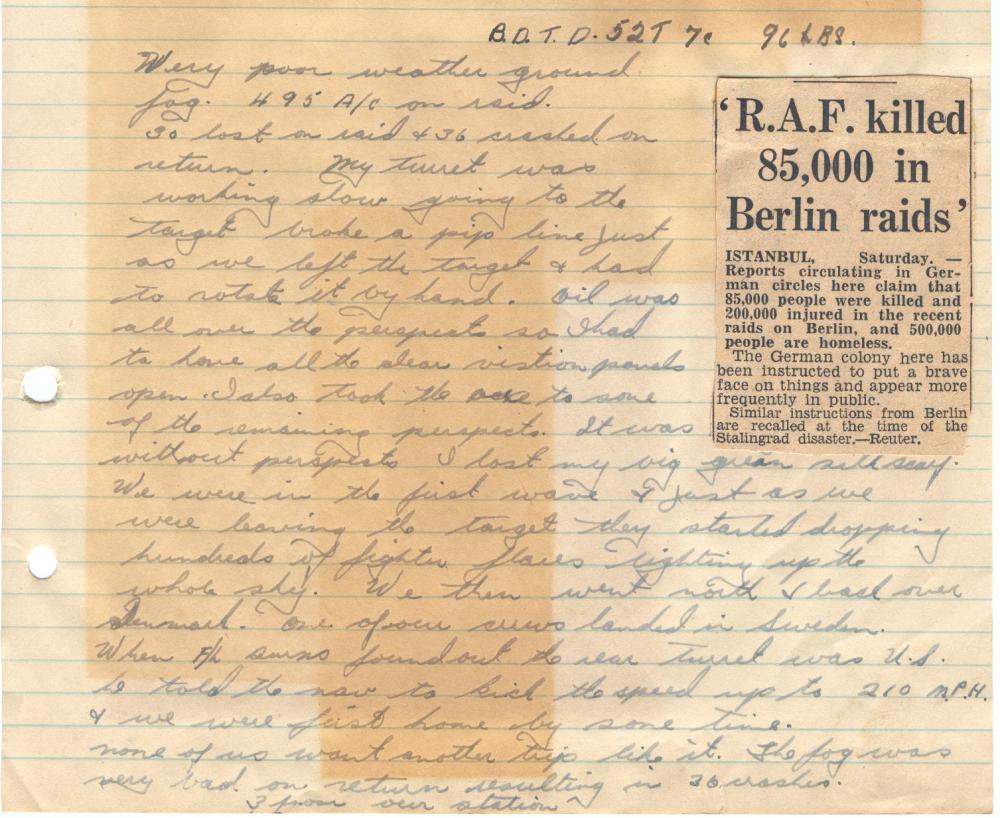 B.D.T.D. 52T 7c 96 LBS.
Wery poor weather ground
fog. 495 A/C on raid.
30 lost on raid & 36 crashed on
return. My turret was
working slow going to the
target broke a pip line just
as we left the target & had
to rotate it by hand. Oil was
all over the perspects so I had
to have all the clear vistion panels
open. I also took the axe to some
of the remaining perspects. It was
without perspects I lost my big green silk scarf.
We were in the first wave & just as we
were leaving the target they started dropping
hundreds of fighter flares lighting up the
whole sky. We then went north & back over
Denmark. One of our crews landed in Sweden.
When F/L found out the rear turret was U.S.
he told the nav to kick the speed up to 210 M.P.H.
& we were first home by some time.
none of us want another trip like it. The fog was
very bad on return resulting in 36 crashes.
3 from our station
'R.A.F. killed
85,000 in
Berlin raids'
ISTANBUL, Saturday. —
Reports circulating in Ger-
man circles here claim that
85,000 people were killed and
200,000 injured in the recent
raids on Berlin, and 500,000
people are homeless.
The German colony here has
been instructed to put a brave
face on things and appear more
frequently in public.
Similar instructions from Berlin
are recalled at the time of the
Stalingrad disaster.—Reuter.